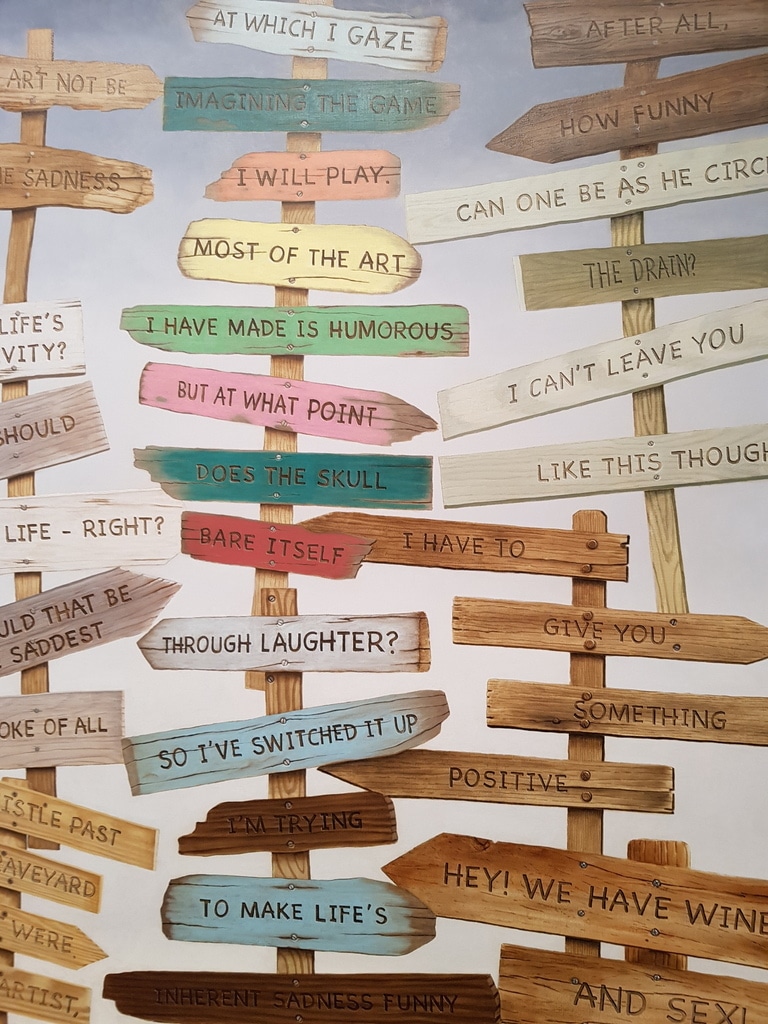 ART NOT BE
HE SADNESS
LIFE'S
VITY?
SHOULD
LIFE - RIGHT?
ULD THAT BE
SADDEST
OKE OF ALL
ISTLE PAST
AVEYARD
WERE
ARTIST,
AT WHICH I GAZE
IMAGINING THE GAME
I WILL PLAY.
MOST OF THE ART
I HAVE MADE IS HUMOROUS
BUT AT WHAT POINT
DOES THE SKULL
BARE ITSELF
THROUGH LAUGHTER?
SO I'VE SWITCHED IT UP
I'M TRYING
TO MAKE LIFE'S
INHERENT SADNESS FUNNY
AFTER ALL,
HOW FUNNY
CAN ONE BE AS HE CIRC
THE DRAIN?
I CAN'T LEAVE YOU
LIKE THIS THOUGH
I HAVE TO
GIVE YOU
SOMETHING
POSITIVE
HEY! WE HAVE WINE
AND SEX!